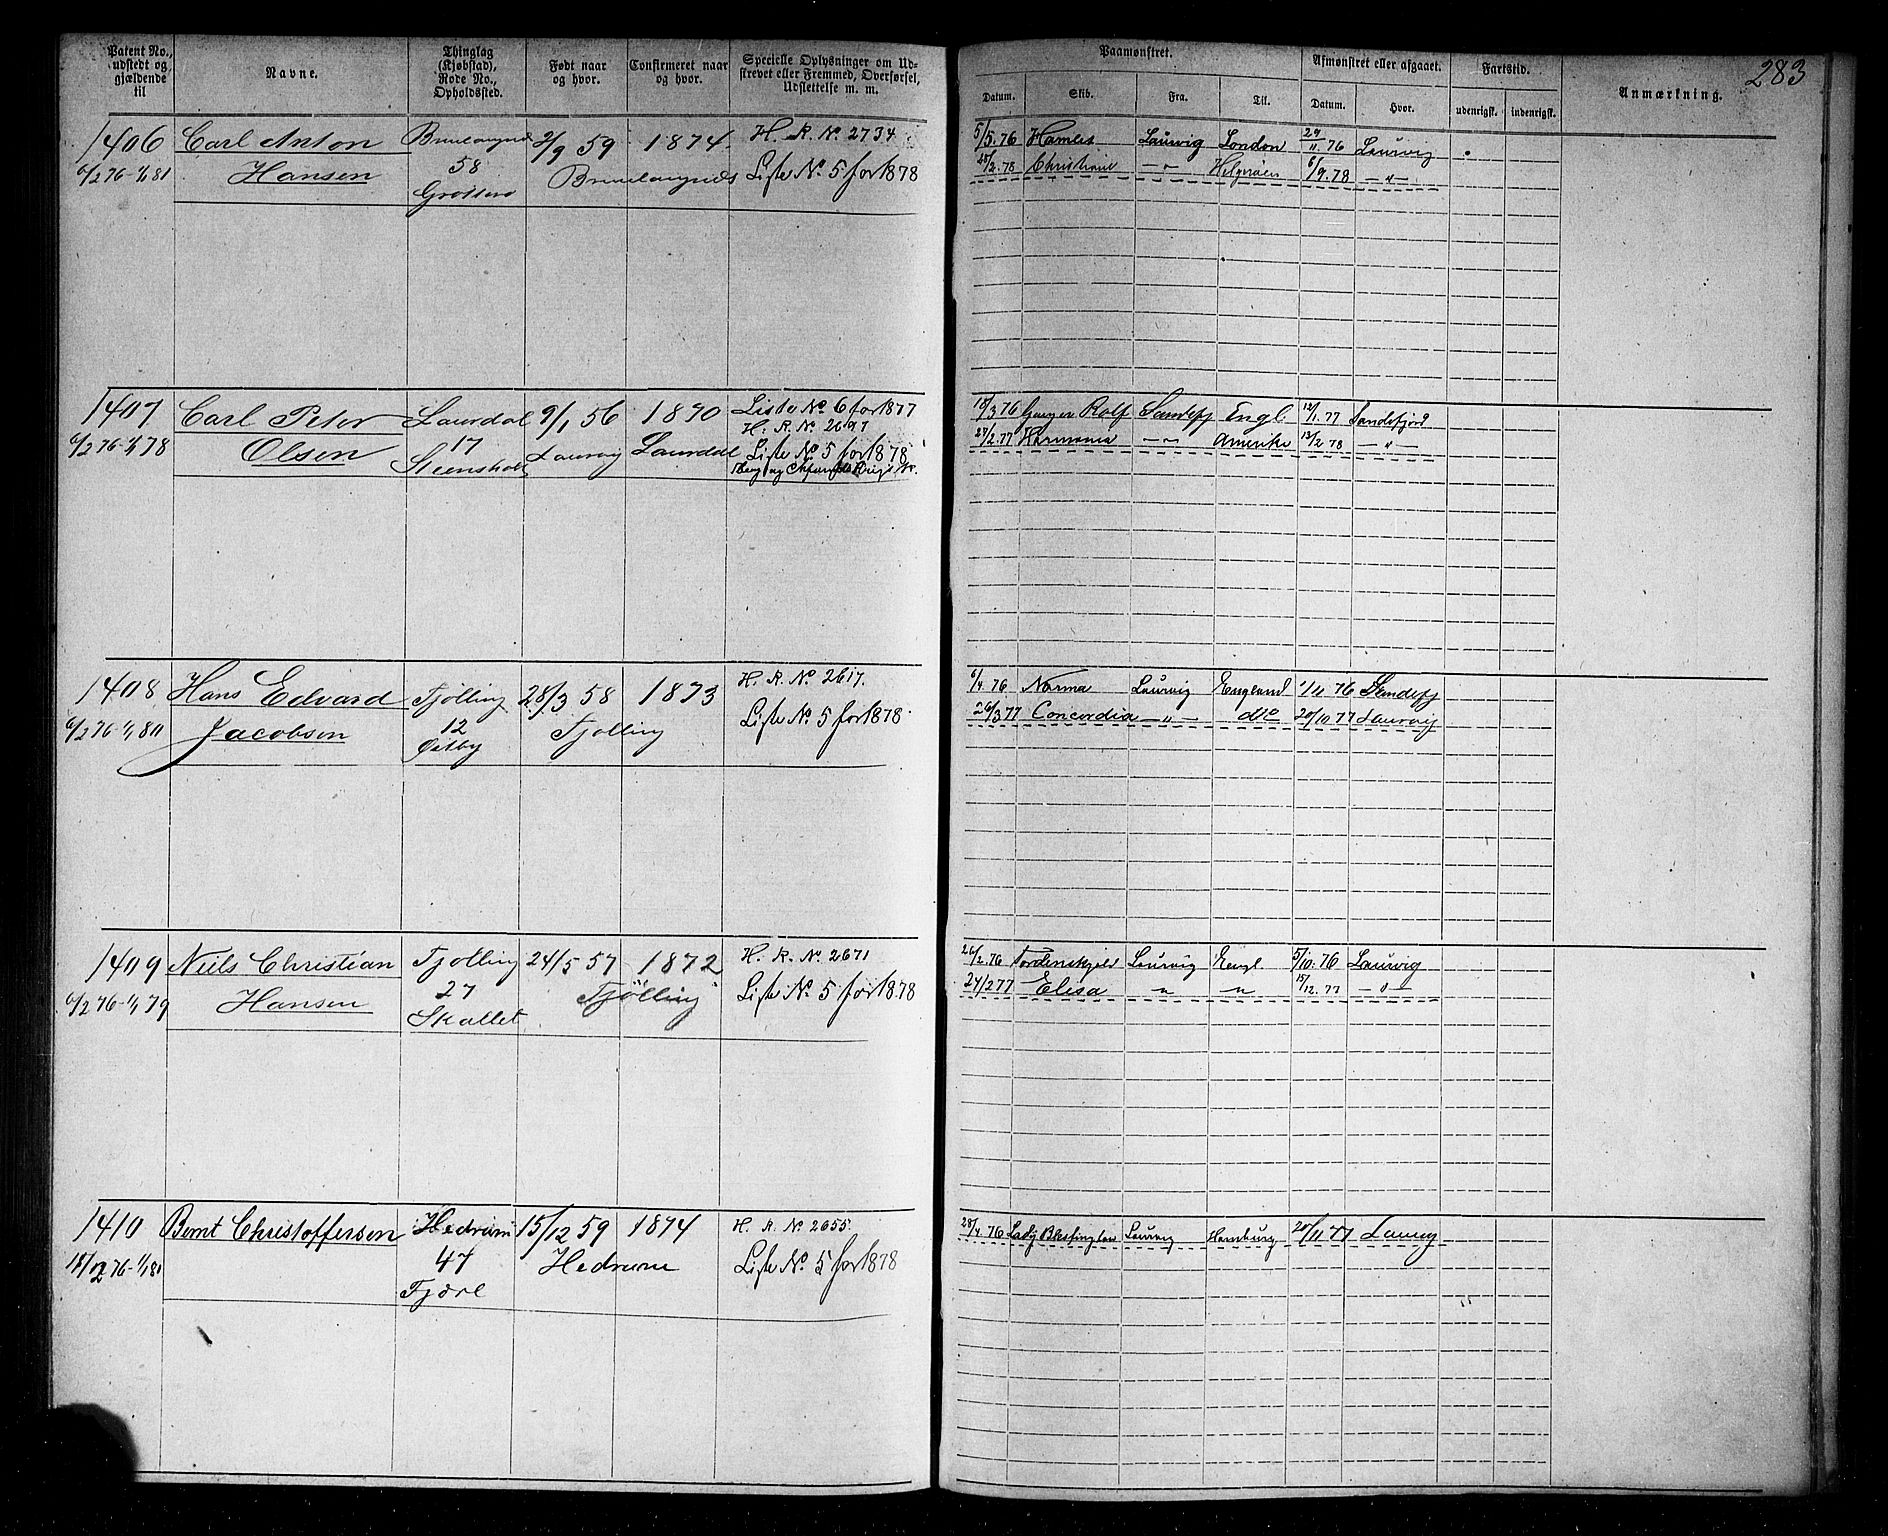 Patent No., udstedt og gjældende til
Navne.
Thinglag (Kjøbstad), Rode No., Opholdssted.
Født naar og hvor.
Confirmeret naar og hvor.
Specielle Oplysninger om Udskrevet eller Fremmed, Overførsel, Udslettelse m. m.
Paamønstret.
Afmønstret eller afgaaet.
Fartstid.
Anmærkning.
283
Datum.
Skib.
Fra.
Til.
Datum.
Hvor.
udenrigsk.
indenrigsk.
1406 Carl Anton 2/9 59 1874. H. R. No. 2734
6/2 76-1/1 81 Hansen 58 Brunlaugnæs Liste No. 5 for 1878
5/5. 76 Hamlet Laurvig London 29/11. 76 Laurvig
/2. 78 -"- 6/9. 78 -"-
1407 Carl Peter Laurdal 9/1 56 1870 Liste No. 6 for 1877
H. R. No. 2697
6/2 76-1/1 78 Olsen 17 Laurvig Laurdal Liste No. 5 for 1878
Steensholt
18/3 76 Ganger Rolf Sandefj Engl. 12/1. 77 Sandefjord
/2. 77 -"- Amerika 13/2. 78 -"-
1408 Hans Edvard Tjølling 28/3 58 1873 H. R. No. 2617.
6/2 76-1/1 80 Jacobsen 12 Tjølling Liste No. 5 for 1878
Østby
6/4. 76 Norma Laurvig England /11 76 Sandefj
26/3 77 Concordia -"- do 20/10. 77 Laurvig
1409 Niels Christian Tjølling 24/5 57 1872 H. R. No. 2671
6/2 76-1/1 79 Hansen 27 Tjølling Liste No. 5 for 1878
Skallet
26/2. 76 Tordenskjold Laurvig Engl. 5/10. 76 Laurvig
24/2 77 Elisa " " 15/12. 77 -"-
1410 Bernt Christoffersen Hedrum 15/12 59 1874 H. R. No. 2655
18/2 76-1/1 80 47 Hedrum Liste No. 5 for 1878
Tjære
28/4. 76 Lady Laurvig Hamburg 20/11 77 Laurvig